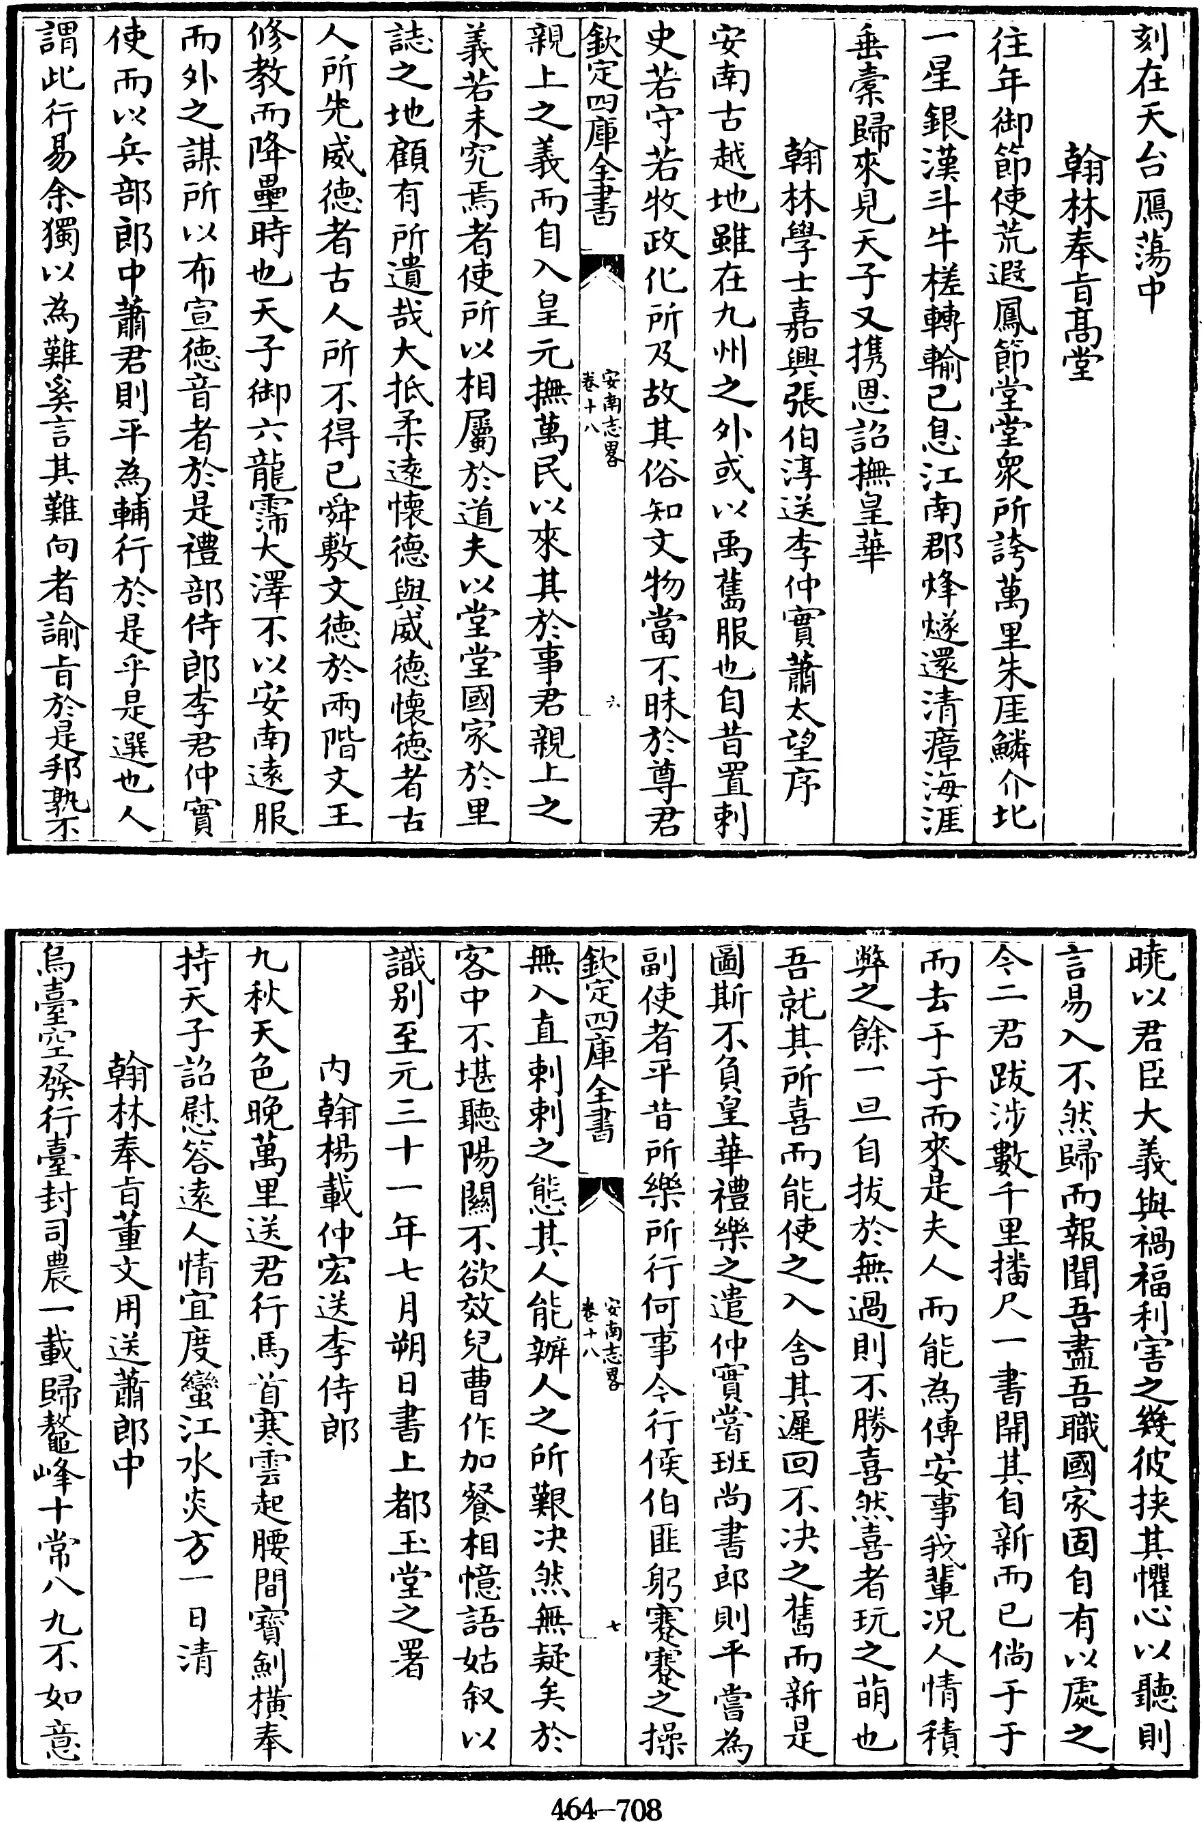 刻在天台鴈蕩中
翰林奉旨高堂
往年御節使荒遐鳳節堂堂衆所誇萬里朱厓鱗介北
一星銀漢斗牛槎轉輸已息江南郡烽燧還清瘴海涯
垂橐歸來見天子又携恩詔撫皇華
翰林學士嘉興張伯淳送李仲實蕭太望序
安南古越地雖在九州之外或以禹舊服也自昔置刺
史若守若牧政化所及故其俗知文物當不昧於尊君
欽定四庫全書
安南志畧
卷十八
六
親上之義而自入皇元撫萬民以來其於事君親上之
義若未究焉者使所以相屬於道夫以堂堂國家於里
誌之地顧有所遺哉大抵柔遠懷德與威德懷德者古
人所先威德者古人所不得已舜敷文德於兩階文王
修教而降壘時也天子御六龍霈大澤不以安南遠服
而外之謀所以布宣德音者於是禮部侍郎李君仲實
使而以兵部郎中蕭君則平為輔行於是乎是選也人
謂此行易余獨以為難奚言其難向者諭旨於是邦孰不
曉以君臣大義與禍福利害之幾彼挟其懼心以聽則
言易入不然歸而報聞吾盡吾職國家固自有以處之
今二君跋涉數千里播尺一書開其自新而已倘于于
而去于于而來是夫人而能為傳安事我輩況人情積
弊之餘一旦自拔於無過則不勝喜然喜者玩之萌也
吾就其所喜而能使之入舍其遲回不决之舊而新是
圖斯不負皇華禮樂之遣仲實嘗班尚書郎則平嘗為
副使者平昔所樂所行何事今行候伯匪躬蹇蹇之操
欽定四庫全書
安南志畧
卷十八
七
無入直刺刺之態其人能辦人之所艱决然無疑矣於
客中不堪聽陽關不欲效兒曹作加餐相憶語姑叙以
識别至元三十一年七月朔日書上都玉堂之署
内翰楊載仲宏送李侍郎
九秋天色晚萬里送君行馬首寒雲起腰間寳劍横奉
持天子詔慰答遠人情宜度蠻江水炎方一日清
翰林奉旨董文用送蕭郎中
烏臺空發行臺封司農一載歸鼇峰十常八九不如意
464-708